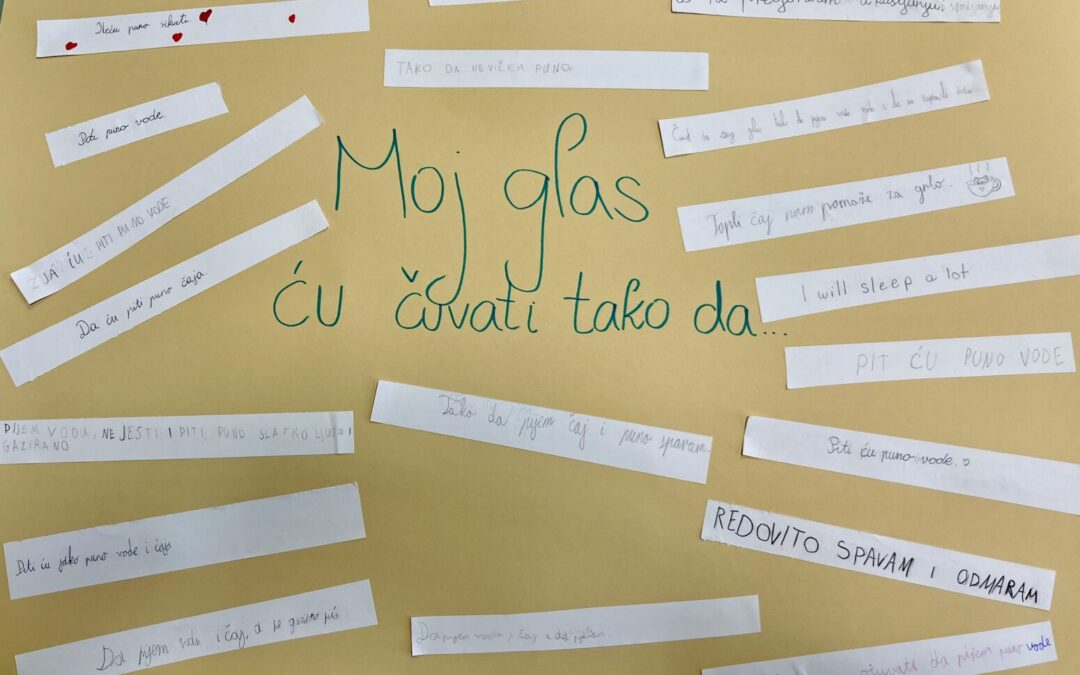 Neću puno vikati
TAKO DA NEVIČEM PUNO
Piti puno vode.
Čuvat ću svoj glas tak da pijem više vode i da ne
Moj glas
ću čuvati tako da...
Topli čaj nam pomaže za grlo.
JA ĆU PITI PUNO VODE
Da ću piti puno čaja.
I will sleep a lot
PIT ĆU PUNO VODE
Tako da pijem čaj i puno spavam.
PIJEM VODU, NE JESTI I PITI, PUNO SLATKO LJUTO I
GAZIRANO
Piti ću puno vode.
REDOVITO SPAVAM I ODMARAM
Piti ću jako puno vode i čaja
Da pijem vodu i čaj, a ne gazirano piće
Da pijem vodu, čaj i da
da pijem puno vode